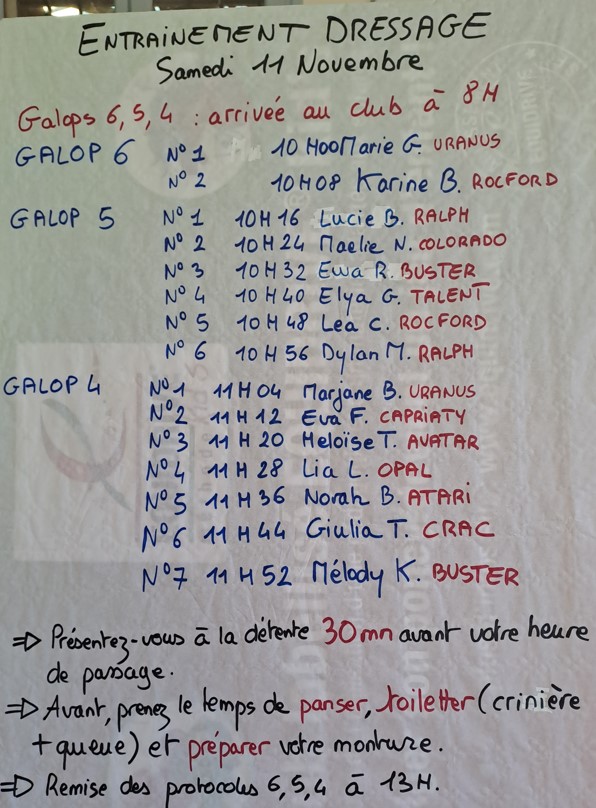 ENTRAINEMENT DRESSAGE
Samedi 11 Novembre
Galops 6, 5, 4 : arrivée au club à 8H
GALOP 6 N°1 10H00 Marie G. URANUS
N°2 10H08 Karine B. ROCFORD
GALOP 5 N°1 10H16 Lucie B. RALPH
N°2 10H24 Maelie N. COLORADO
N°3 10H32 Ewa R. BUSTER
N°4 10H40 Elya G. TALENT
N°5 10H48 Lea C. ROCFORD
N°6 10H56 Dylan M. RALPH
GALOP 4 N°1 11H04 Marjane B. URANUS
N°2 11H12 Eva F. CAPRIATY
N°3 11H20 Heloïse T. AVATAR
N°4 11H28 Lia L. OPAL
N°5 11H36 Norah B. ATARi
N°6 11H44 Giulia T. CRAC
N°7 11H52 Mélody K. BUSTER
=> Présentez-vous à la détente 30mn avant votre heure
de passage.
=> Avant, prenez le temps de panser, toiletter (crinière
+ queue) et préparer votre monture.
=> Remise des protocoles 6, 5, 4 à 13H.